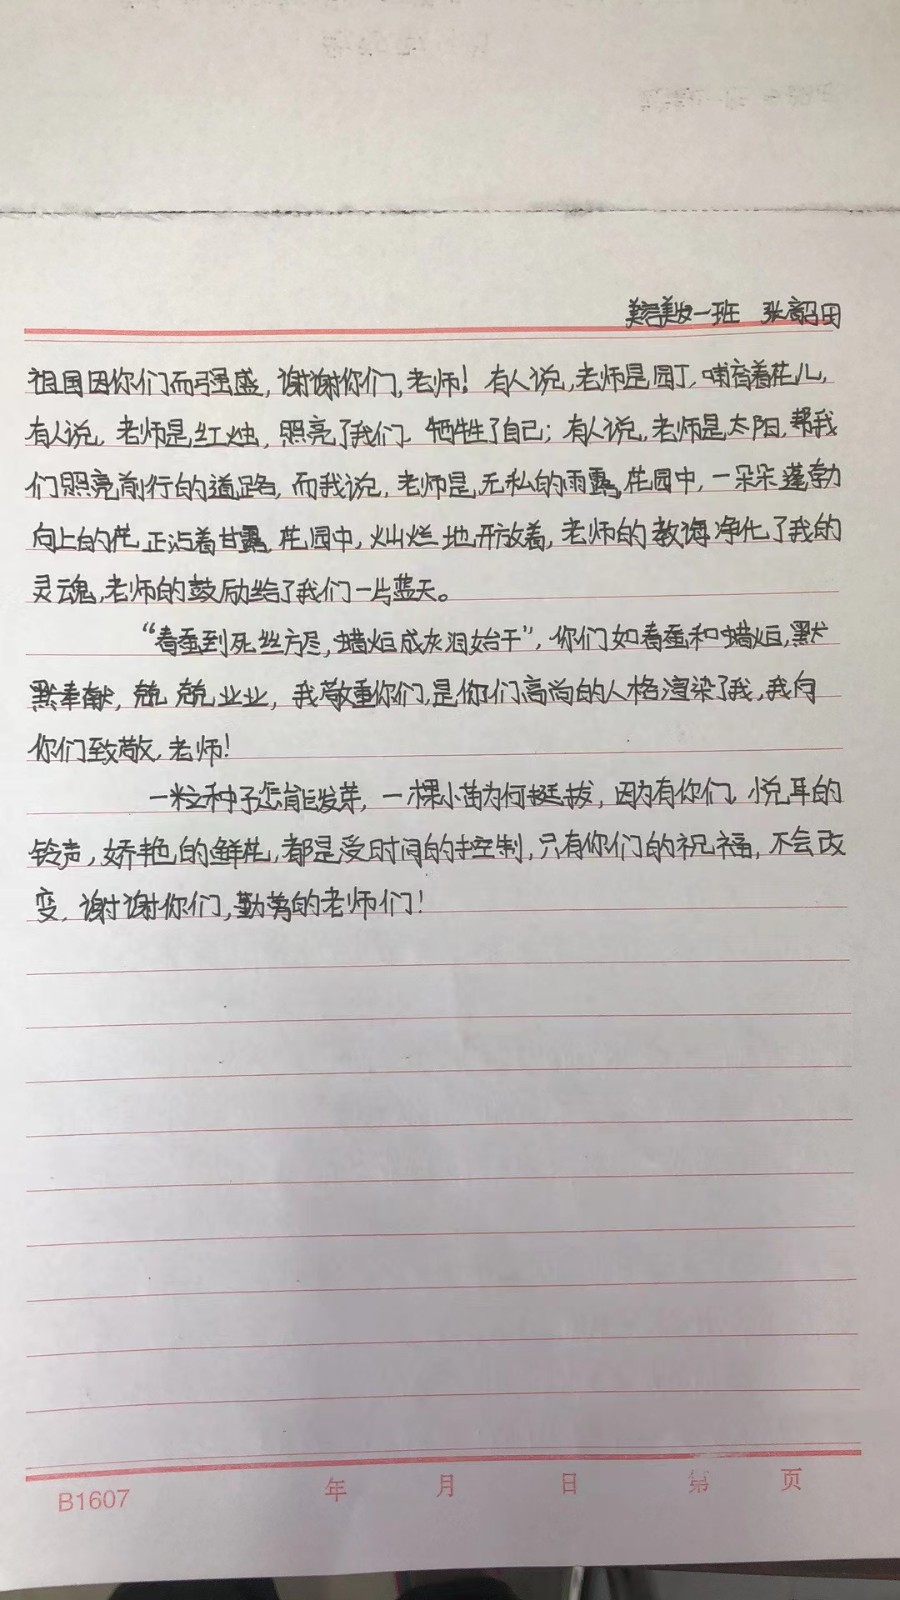 美容美妆一班 张韶田
祖国因你们而强盛,谢谢你们,老师!有人说,老师是园丁,哺育着花儿,
有人说,老师是红烛,照亮了我们,牺牲了自己;有人说,老师是太阳,帮我
们照亮前行的道路,而我说,老师是无私的雨露,花园中,一朵朵蓬勃
向上的花,正沾着甘露,花园中,灿烂地开放着,老师的教诲净化了我的
灵魂,老师的鼓励给了我们一片蓝天。
“春蚕到死丝方尽,蜡炬成灰泪始干”,你们如春蚕和蜡炬,默
默奉献,兢兢业业,我敬重你们,是你们高尚的人格渲染了我,我向
你们致敬,老师!
一粒种子怎能发芽,一棵小苗为何挺拔,因为有你们,悦耳的
铃声,娇艳的鲜花,都是受时间的控制,只有你们的祝福,不会改
变,谢谢你们,勤劳的老师们!
B1607 年 月 日 第 页